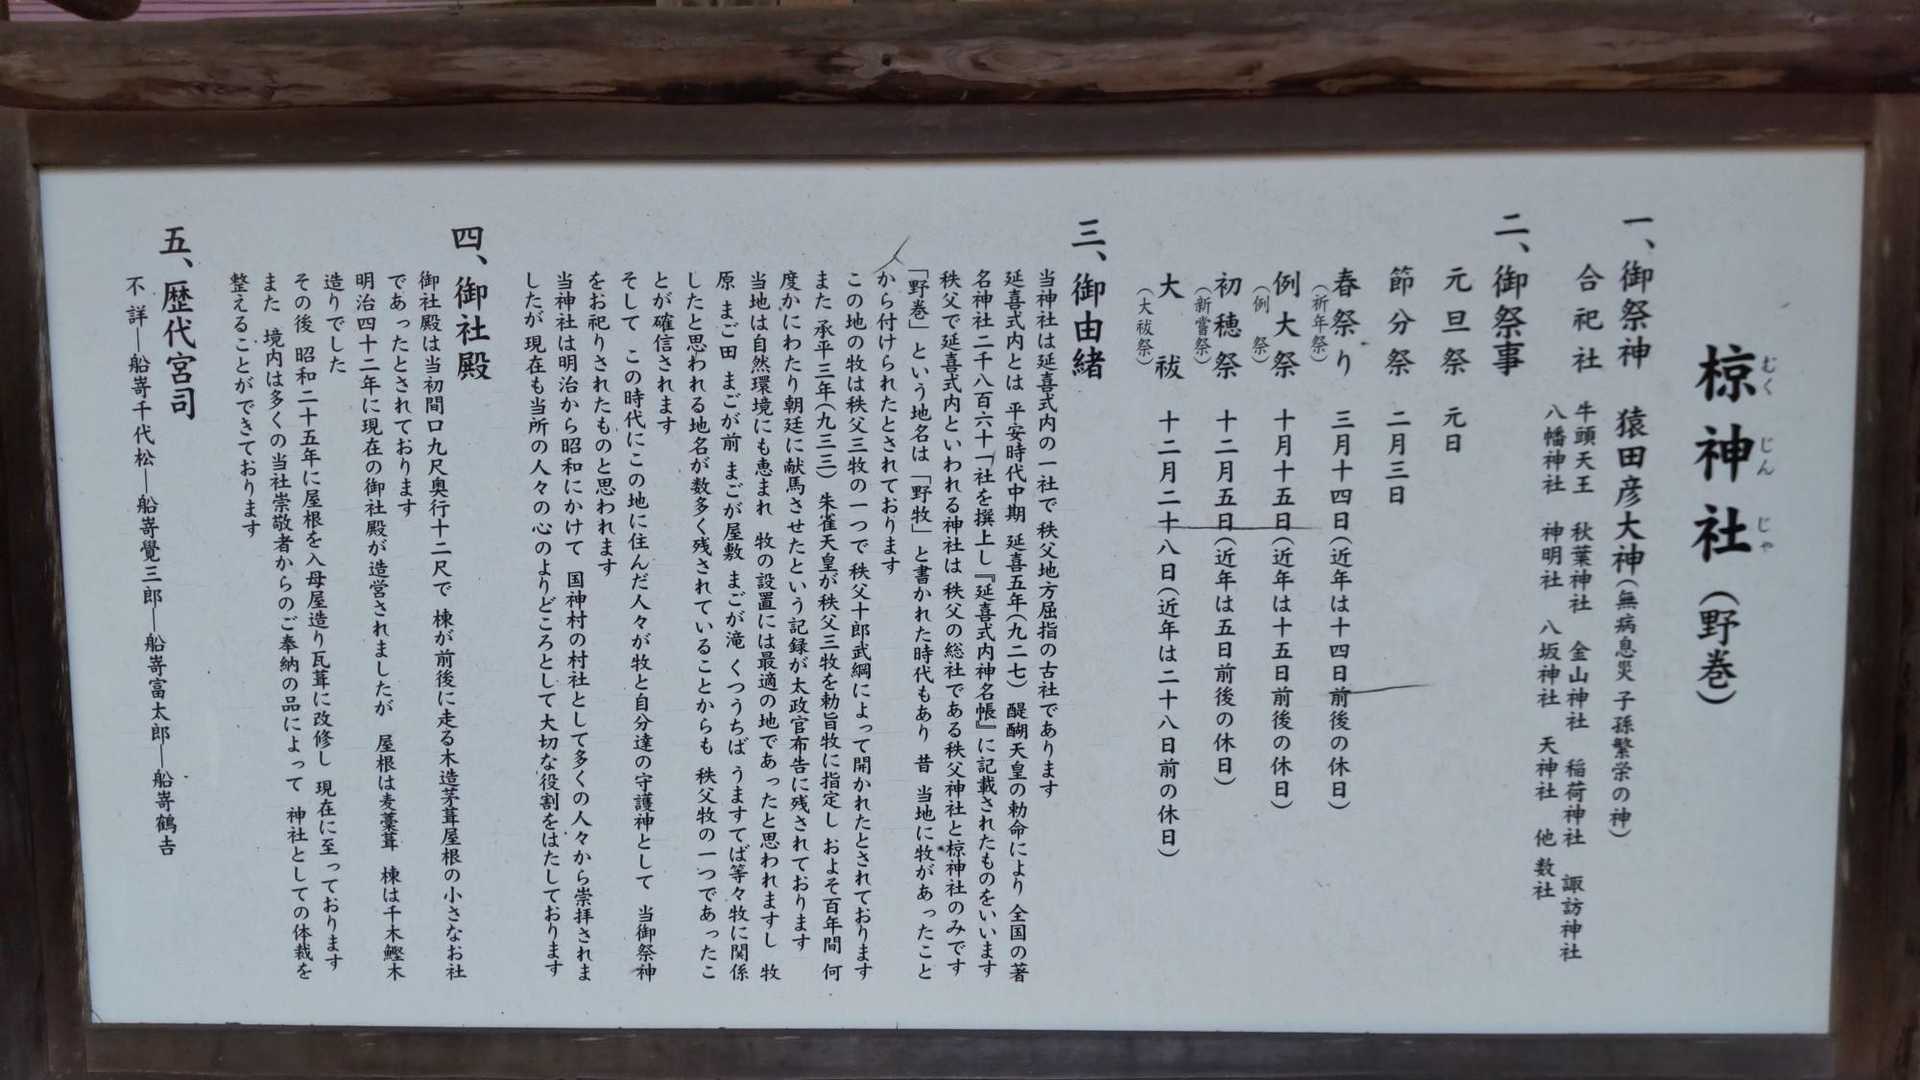 椋神社(野巻)
むくじんじゃ
一、御祭神　猿田彦大神(無病息災　子孫繁栄の神)
合祀社　牛頭天王　秋葉神社　金山神社　稲荷神社　諏訪神社
八幡神社　神明社　八坂神社　天神社　他数社
二、御祭事
元旦祭　元日
節分祭　二月三日
春祭り　三月十四日(近年は十四日前後の休日)
(祈年祭)
例大祭　十月十五日(近年は十五日前後の休日)
(例　祭)
初穂祭　十二月五日(近年は五日前後の休日)
(新嘗祭)
大　祓　十二月二十八日(近年は二十八日前の休日)
(大祓祭)
三、御由緒
当神社は延喜式内の一社で　秩父地方屈指の古社であります
延喜式内とは　平安時代中期　延喜五年(九二七)　醍醐天皇の勅命により　全国の著
名神社二千八百六十一社を撰上し『延喜式内神名帳』に記載されたものをいいます
秩父で延喜式内といわれる神社は　秩父の総社である秩父神社と椋神社のみです
「野巻」という地名は「野牧」と書かれた時代もあり　昔　当地に牧があったこと
から付けられたとされております
この地の牧は秩父三牧の一つで　秩父十郎武綱によって開かれたとされております
また　承平三年(九三三)　朱雀天皇が秩父三牧を勅旨牧に指定し　およそ百年間　何
度かにわたり朝廷に献馬させたという記録が太政官布告に残されております
当地は自然環境にも恵まれ　牧の設置には最適の地であったと思われますし　牧
原　まご田　まごが前　まごが屋敷　まごが滝　くつうちば　うますてば等々牧に関係
したと思われる地名が数多く残されていることからも　秩父牧の一つであったこ
とが確信されます
そして　この時代にこの地に住んだ人々が牧と自分達の守護神として　当御祭神
をお祀りされたものと思われます
当神社は明治から昭和にかけて　国神村の村社として多くの人々から崇拝されま
したが　現在も当所の人々の心のよりどころとして大切な役割をはたしております
四、御社殿
御社殿は当初間口九尺奥行十二尺で　棟が前後に走る木造茅葺屋根の小さなお社
であったとされております
明治四十二年に現在の御社殿が造営されましたが　屋根は麦藁葺　棟は千木鰹木
造りでした
その後　昭和二十五年に屋根を入母屋造り瓦葺に改修し　現在に至っております
また　境内は多くの当社崇敬者からのご奉納の品によって　神社としての体裁を
整えることができております
五、歴代宮司
不詳―船嵜千代松―船嵜覺三郎―船嵜富太郎―船嵜鶴吉